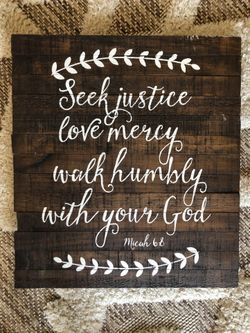 Seek justice
love mercy
walk humbly
with your God
Micah 6:8